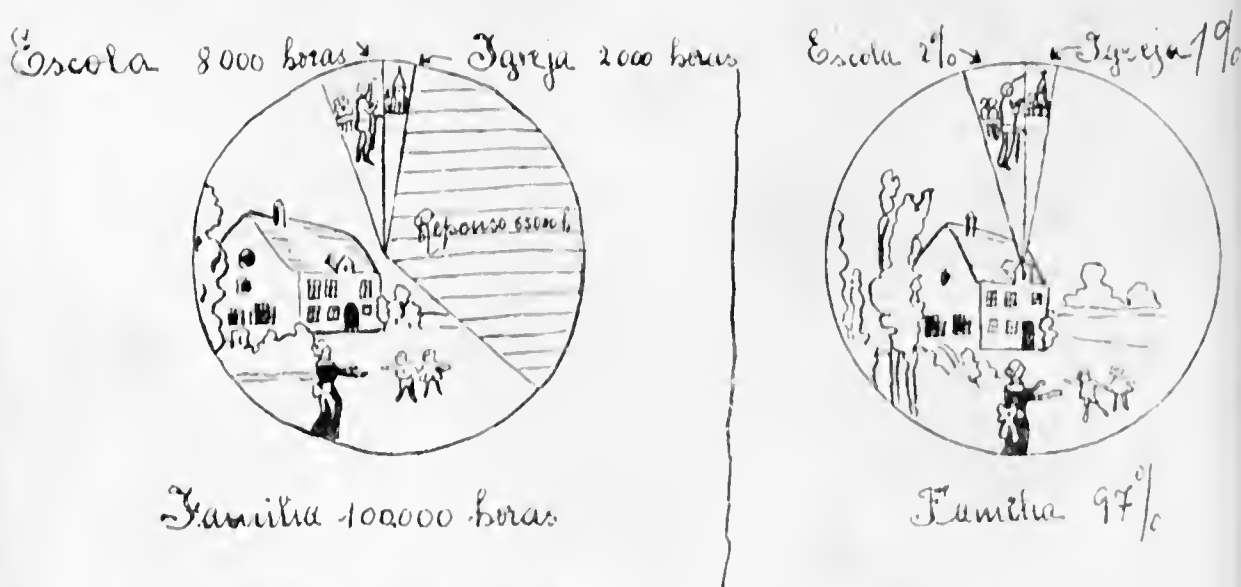 Escola 8000 horas
Igreja 2000 horas
Familia 100.000 horas
Escola 2%
Igreja 1%
Familia 97%